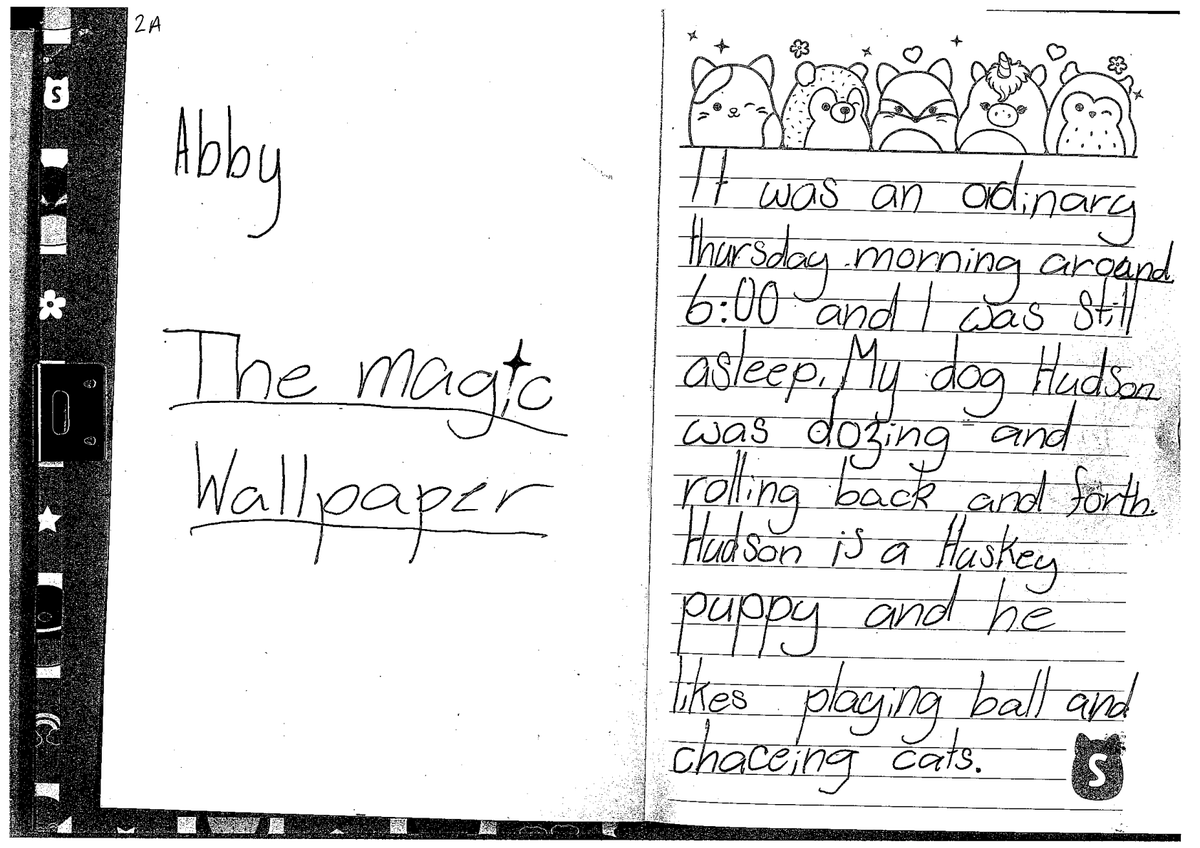 2A
Abby
The magic
Wallpaper
It was an ordinary
thursday morning around
6:00 and I was still
asleep. My dog Hudson
was dozing and
rolling back and forth.
Hudson is a Huskey
puppy and he
likes playing ball and
chaceing cats.
S
S